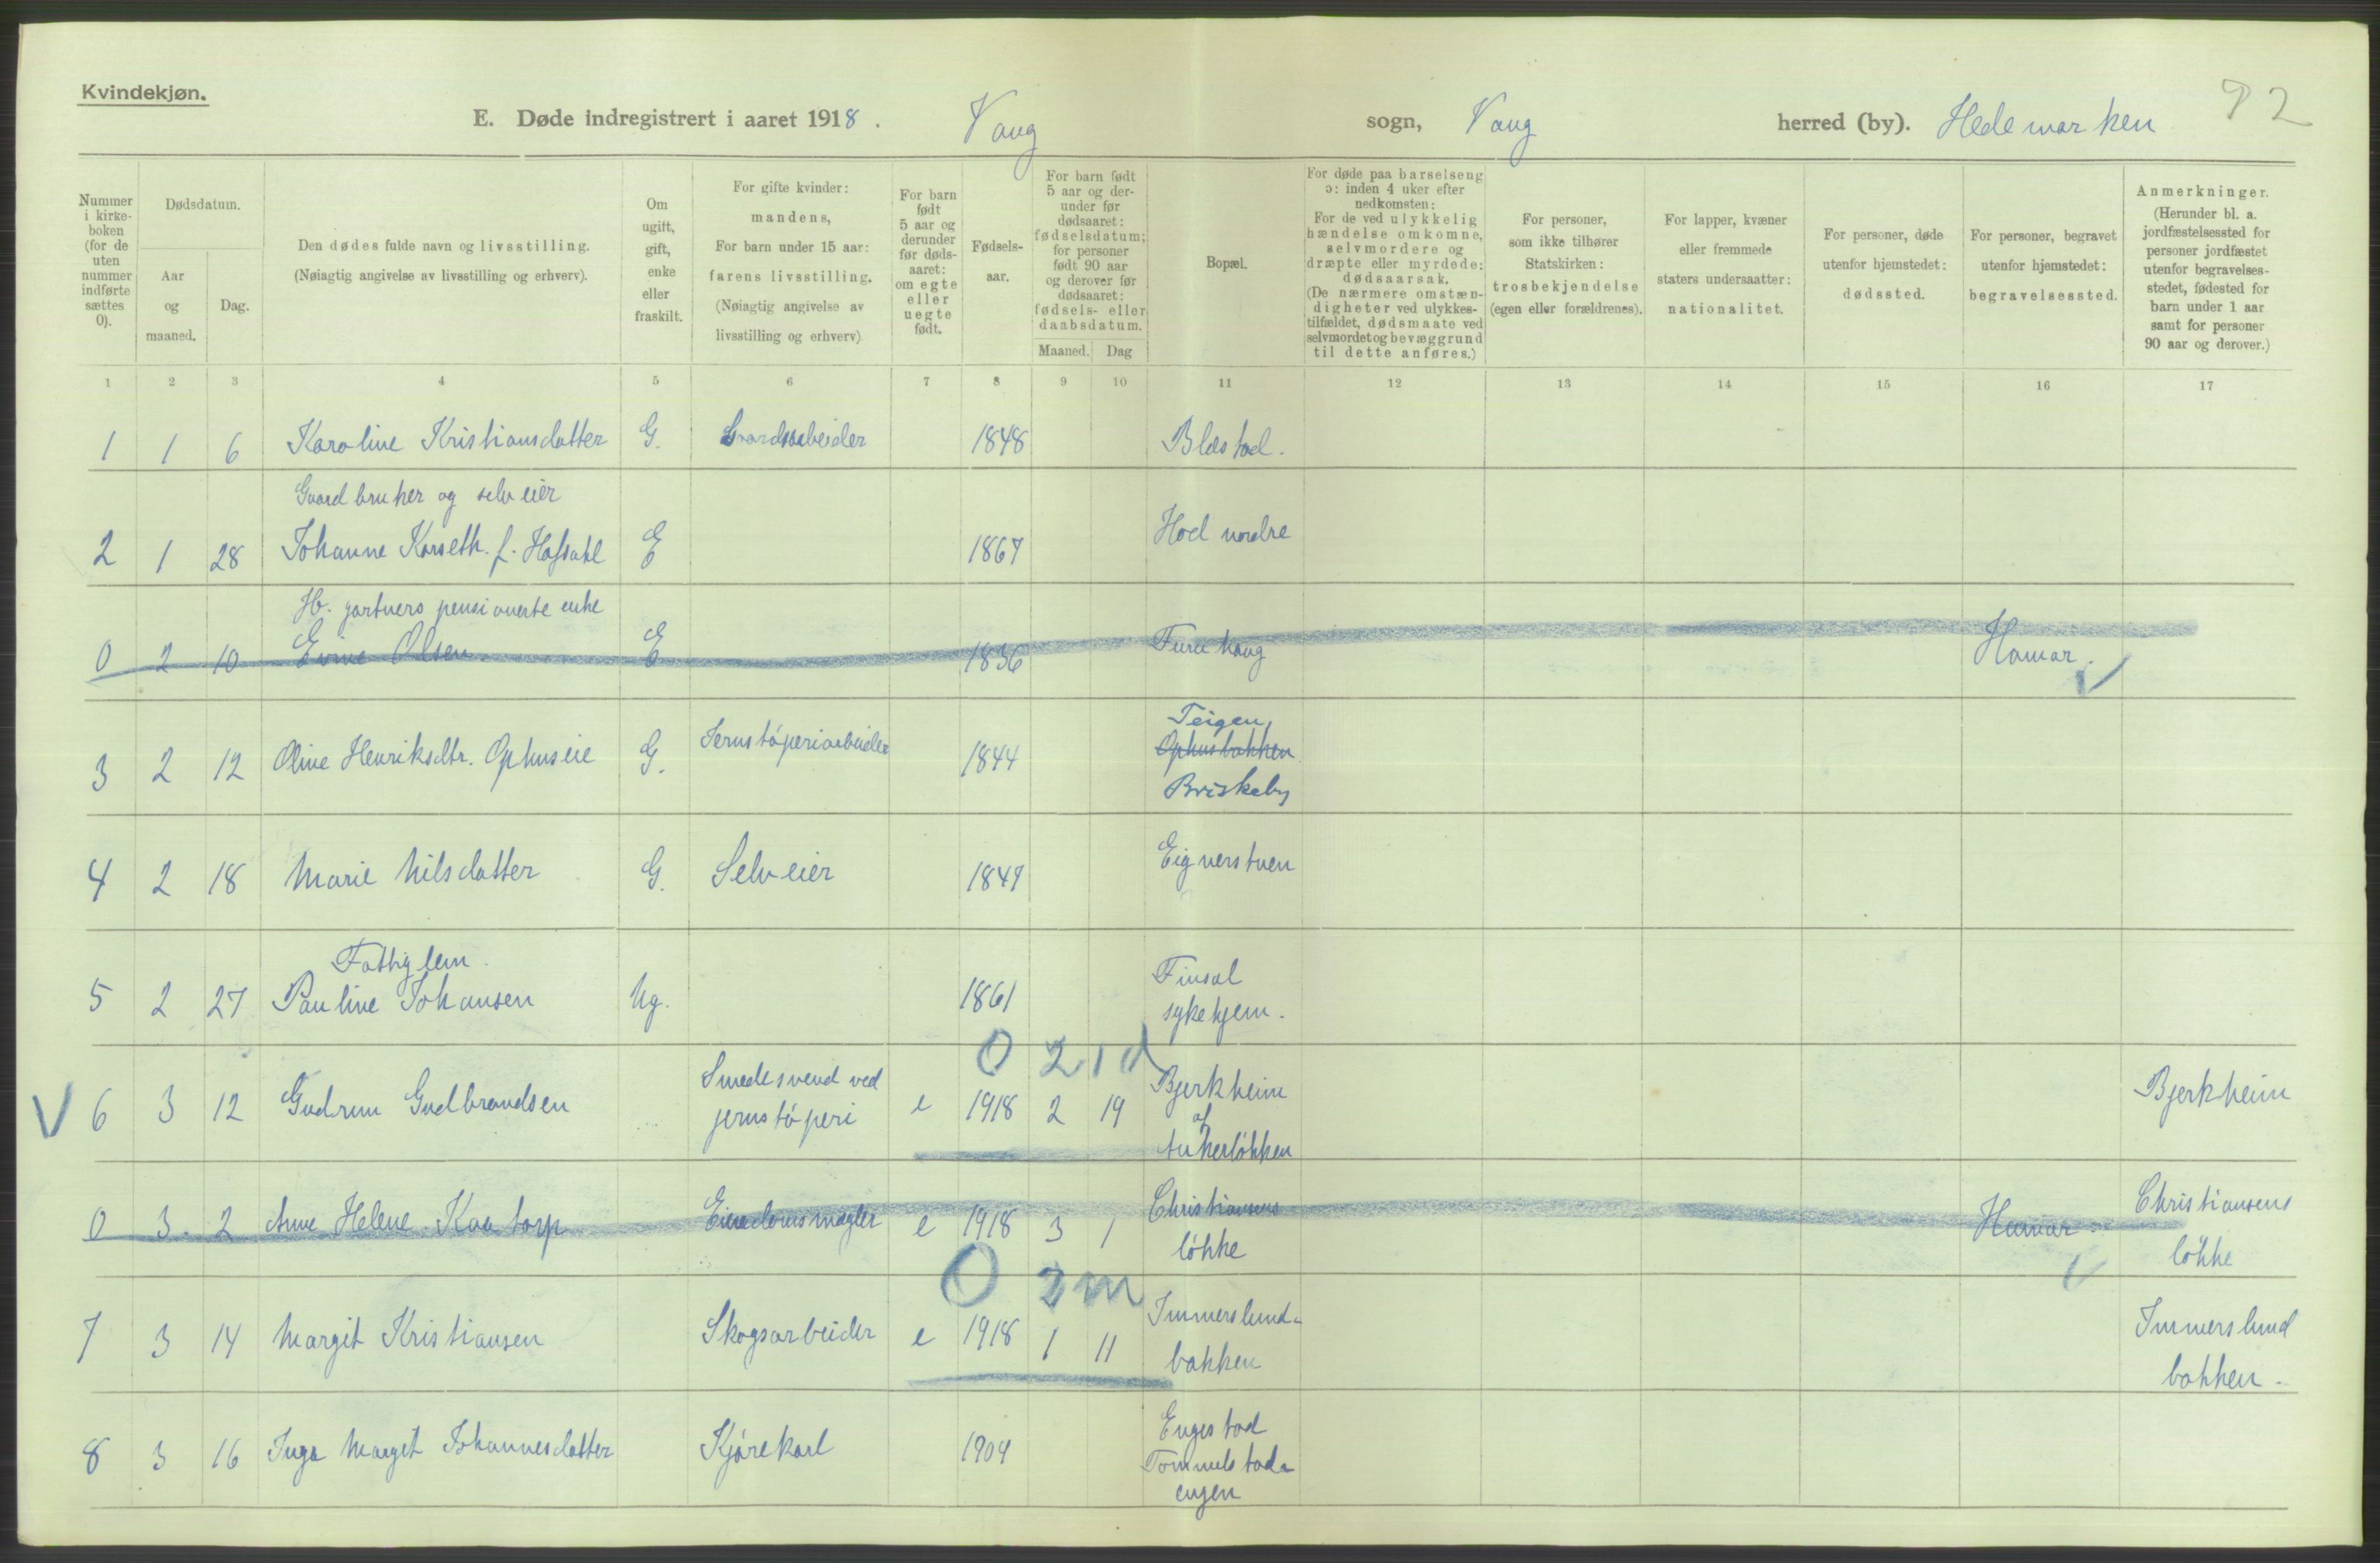 Kvindekjøn.
E. Døde indregistrert i aaret 1918. Vang sogn, Vang herred (by). Hedemarken 92
Nummer i kirke-boken (for de uten nummer indførte sættes 0).
Dødsdatum.
Aar og maaned.
Dag.
Den dødes fulde navn og livsstilling.
(Nøiagtig angivelse av livsstilling og erhverv).
Om ugift, gift, enke eller fraskilt.
For gifte kvinder:
mandens,
For barn under 15 aar:
farens livsstilling.
(Nøiagtig angivelse av
livsstilling og erhverv)
For barn født 5 aar og derunder før døds-aaret: om egte eller uegte født.
Fødsels-aar.
For barn født 5 aar og der-under før dødsaaret: fødselsdatum; for personer født 90 aar og derover før dødsaaret: fødsels- eller daabsdatum.
Maaned. Dag
Bopæl.
For døde paa barselseng
ɔ: inden 4 uker efter
nedkomsten;
For de ved ulykkelig
hændelse omkomne,
selvmordere og
dræpte eller myrdede:
dødsaarsak.
(De nærmere omstæn-
digheter ved ulykkes-
tilfældet, dødsmaate ved
selvmordet og bevæggrund
til dette anføres.)
For personer,
som ikke tilhører
Statskirken:
trosbekjendelse
(egen eller forældrenes).
For lapper, kvæner
eller fremmede
staters undersaatter:
nationalitet.
For personer, døde
utenfor hjemstedet:
dødssted.
For personer, begravet
utenfor hjemstedet:
begravelsessted.
Anmerkninger.
(Herunder bl. a.
jordfæstelsessted for
personer jordfæstet
utenfor begravelses-
stedet, fødested for
barn under 1 aar
samt for personer
90 aar og derover.)
1 2 3 4 5 6 7 8 9 10 11 12 13 14 15 16 17
1 1 6 Karoline Kristiansdatter G. Gaardsarbeider 1848 Blæstad.
Gaardbruker og selveier
2 1 28 Johanne Korseth f. Hofsahl E 1867 Hoel nordre
Hv. gartners pensionerte enke
0 2 10 Olsen E 1836 Furuhaug Hamar.
3 2 12 Oline Henriksdtr. Ophuseie G. Jernstøperiarbeider 1844 Teigen,
Ophusbakken
Briskeby
4 2 18 Marie Nilsdatter G. Selveier 1847 Eignerstuen
Fattiglem
5 2 27 Pauline Johansen Ug. 1861 Finsal
sykehjem.
0 21 d
V 6 3 12 Gudrun Gudbrandsen Smedesvend ved
jernstøperi e 1918 2 19 Bjerkheim
af
Ankerløkken Bjerkheim
0 3 2 Anne Helene Kaatorp Eiendomsmægler e 1918 3 1 Christiansens
løkke Hamar. Christiansens
løkke
0 2 m
7 3 14 Margit Kristiansen Skogsarbeider e 1918 1 11 Immerslund-
bakken Immerslund
bakken.
8 3 16 Inga Margit Johannesdatter Kjørekarl 1904 Engestad
Tommelstad-
engen